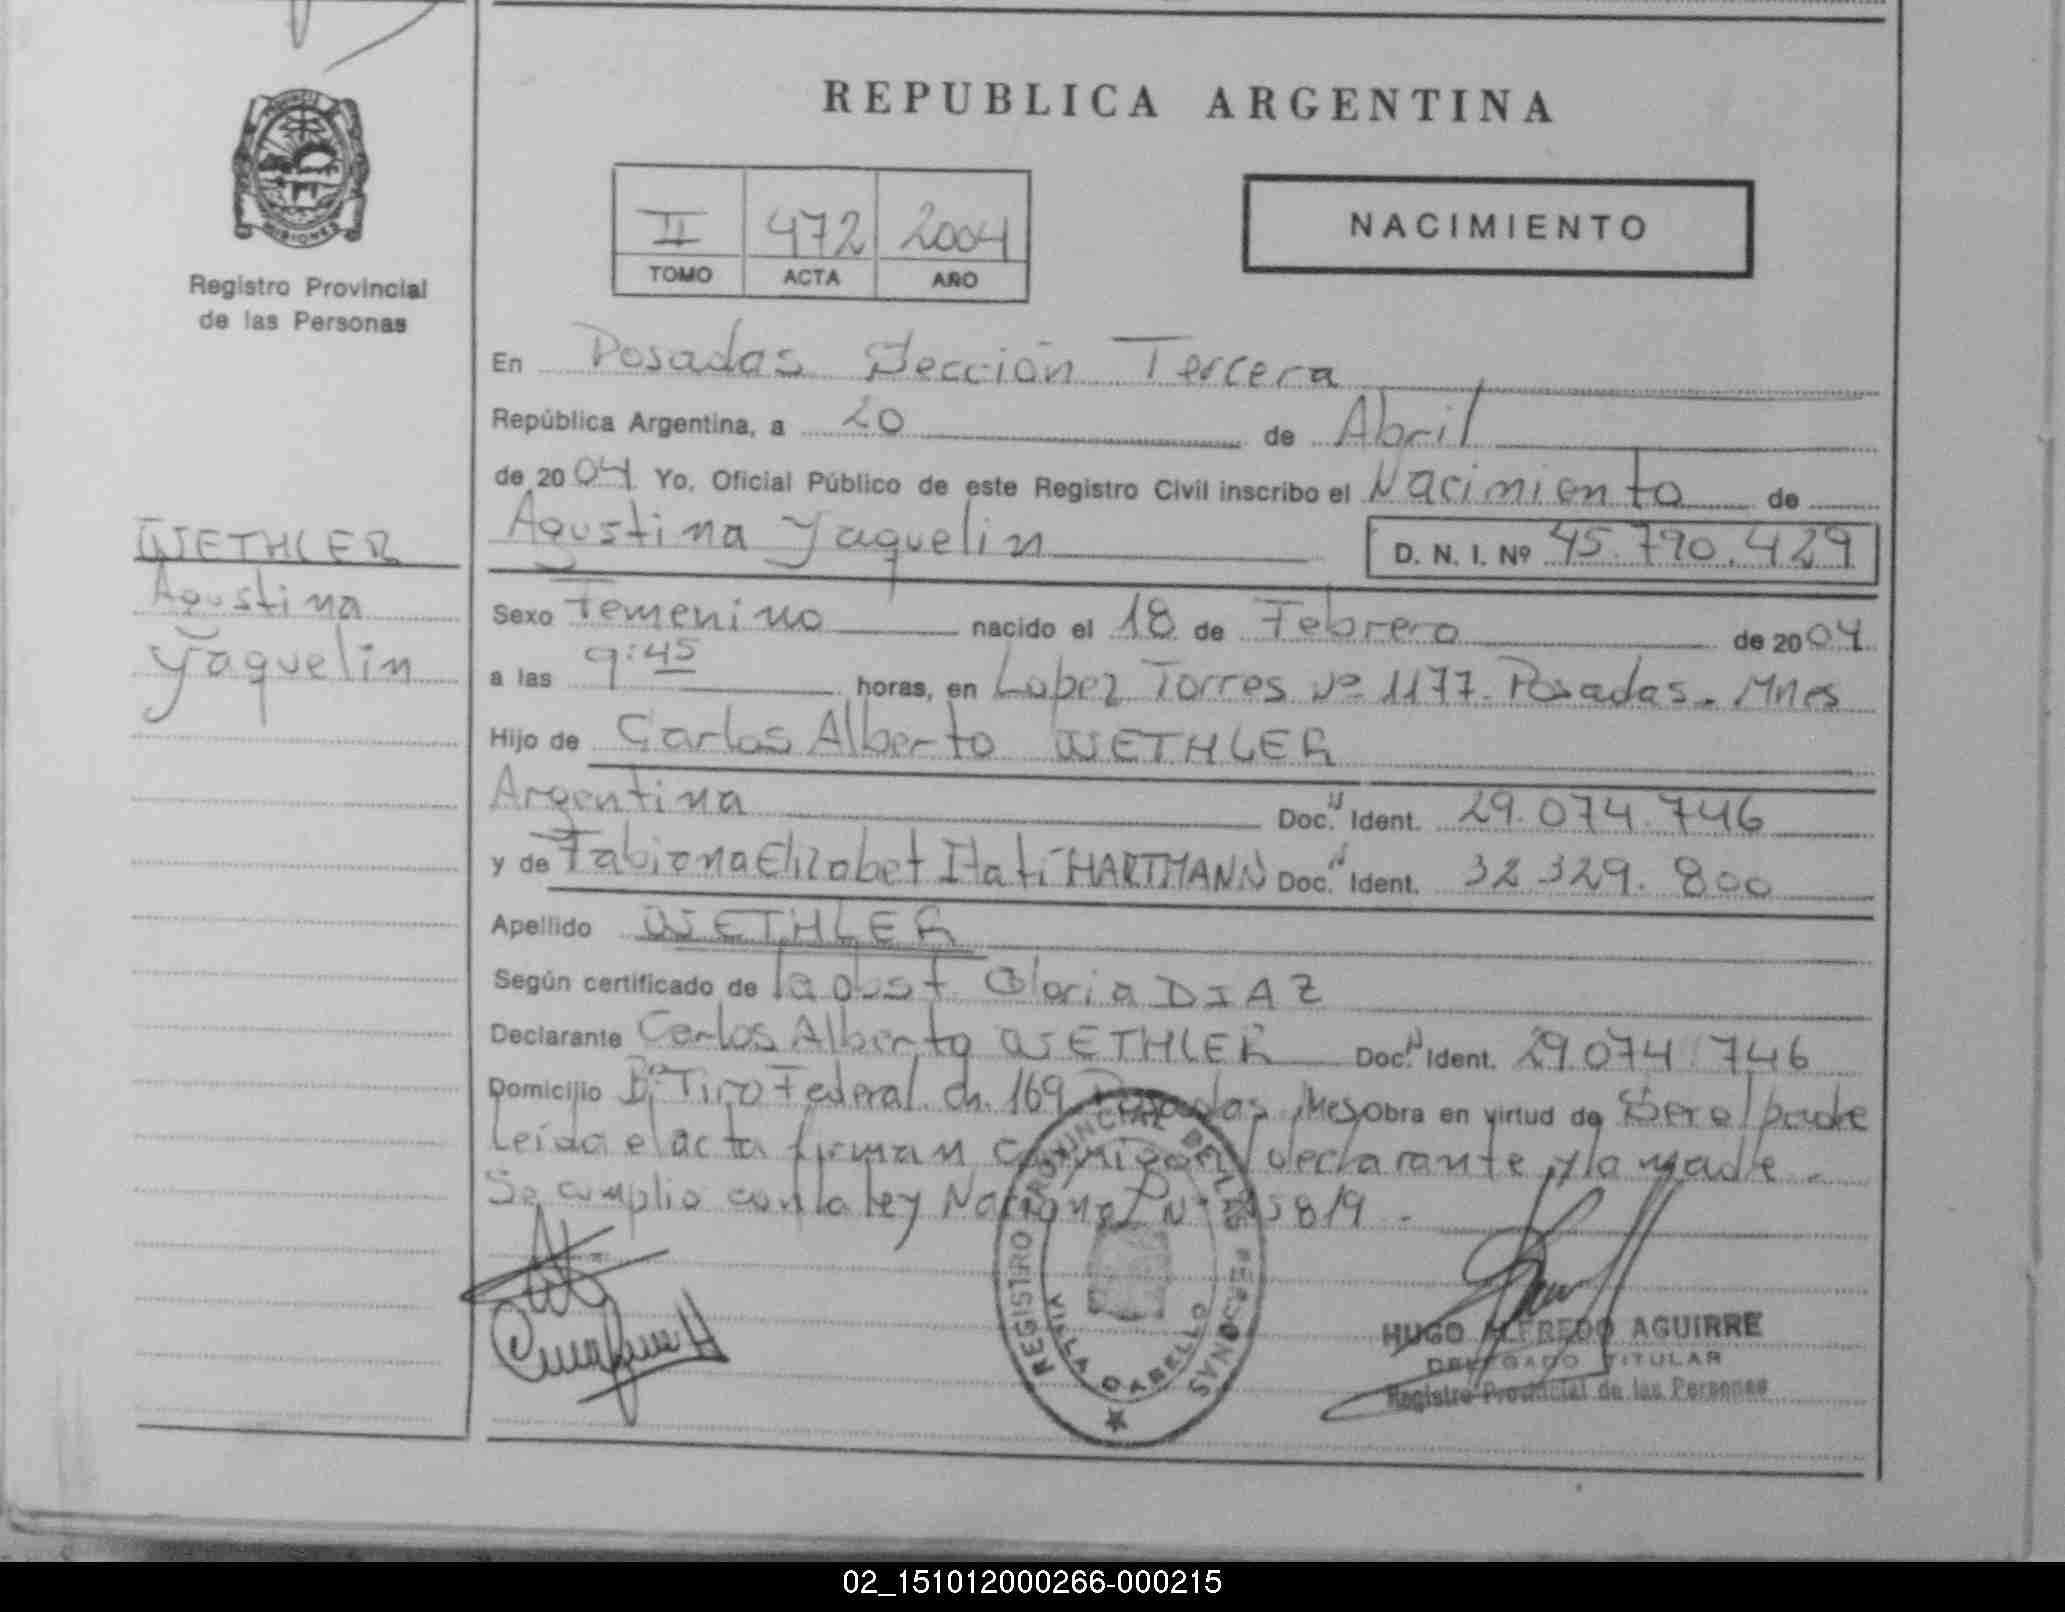 REPUBLICA ARGENTINA
PROVINCIA
MISIONES
Registro Provincial
de las Personas
II 472 2004
TOMO ACTA AÑO
NACIMIENTO
En Posadas Sección Tercera
República Argentina, a 20 de Abril
de 2004 Yo, Oficial Público de este Registro Civil inscribo el Nacimiento de
Agustina Yaquelin D. N. I. Nº 45.790.429
WETHLER
Agustina
Yaquelin
Sexo Femenino nacido el 18 de Febrero de 2004
a las 9:45 horas, en Lopez Torres Nº 1177. Posadas. Mnes
Hijo de Carlos Alberto WETHLER
Argentina Doc. N Ident. 29.074.746
y de Fabiana Elizabet Itatí HARTMANN Doc. N Ident. 32.329.800
Apellido WETHLER
Según certificado de la obst. Gloria DIAZ
Declarante Carlos Alberto WETHLER Doc. N Ident. 29.074.746
Domicilio Bº Tiro Federal. Ch. 169 Posadas Mnes obra en virtud de Ser el padre
Leída el acta firman conmigo el declarante y la madre.
Se cumplio con la ley Nacional Nº 5819.
REGISTRO PROVINCIAL DE LAS PERSONAS
VILLA CABELLO
HUGO ALFREDO AGUIRRE
DELEGADO TITULAR
Registro Provincial de las Personas
02_151012000266-000215